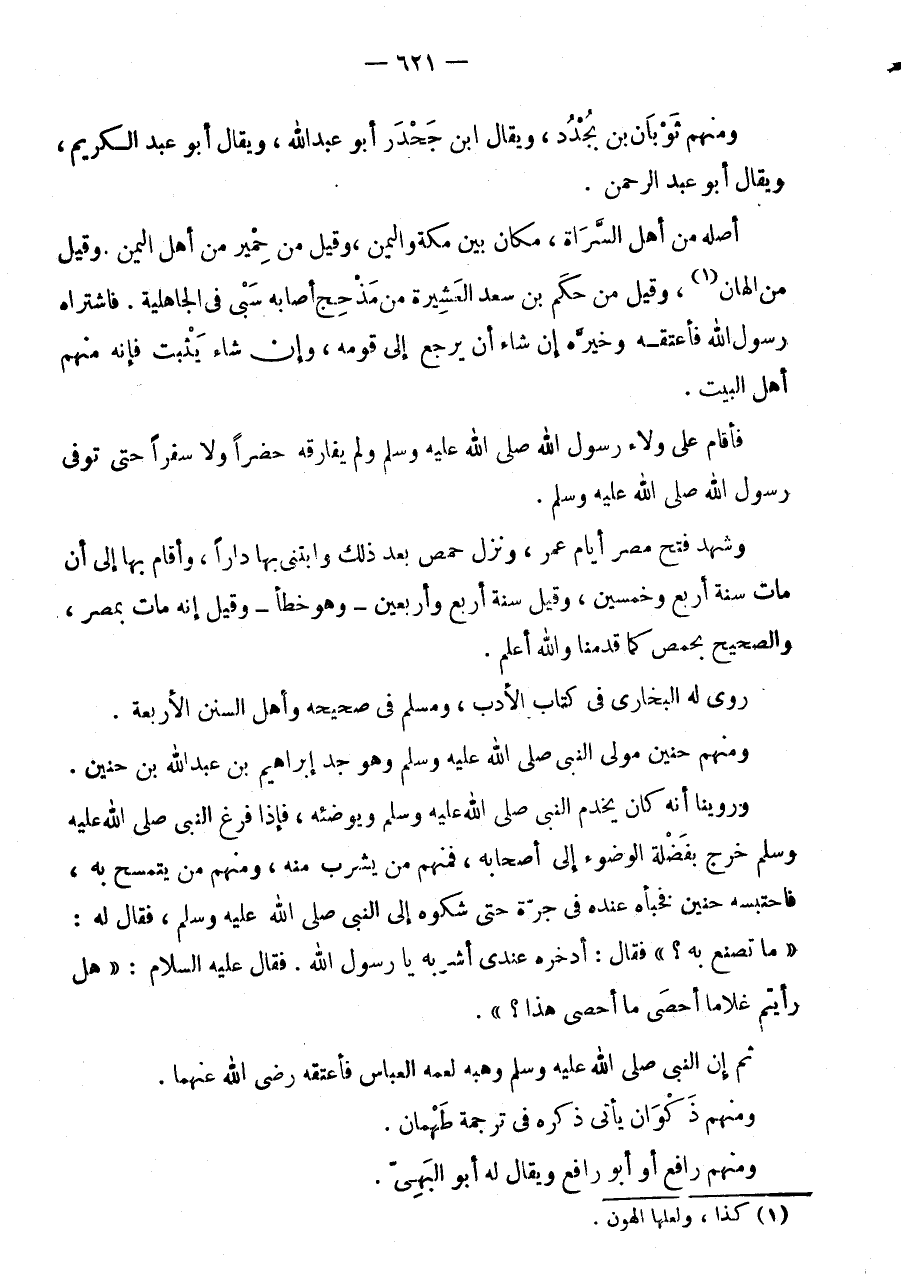 — ٦٢١ —
ومنهم ثَوْبَان بن بُجْدُد ، ويقال ابن جَحْدَر أبو عبدالله ، ويقال أبو عبد الكريم ،
ويقال أبو عبد الرحمن .
أصله من أهل السَّرَاة ، مكان بين مكة واليمن ، وقيل من حِمْير من أهل اليمن . وقيل
من الهان (١) ، وقيل من حكَم بن سعد العَشِيرة من مَذْحِج أصابه سَبْى فى الجاهلية . فاشتراه
رسول الله فأعتقه وخيرَّه إن شاء أن يرجع إلى قومه ، وإن شاء يَثْبت فإنه منهم
أهل البيت .
فأقام على ولاء رسول الله صلى الله عليه وسلم ولم يفارقه حضراً ولا سفراً حتى توفى
رسول الله صلى الله عليه وسلم .
وشهد فتح مصر أيام عمر ، ونزل حمص بعد ذلك وابتنى بها داراً ، وأقام بها إلى أن
مات سنة أربع وخمسين ، وقيل سنة أربع وأربعين – وهو خطأ – وقيل إنه مات بمصر ،
والصحيح بحمص كما قدمنا والله أعلم .
روى له البخارى فى كتاب الأدب ، ومسلم فى صحيحه وأهل السنن الأربعة .
ومنهم حنين مولى النبى صلى الله عليه وسلم وهو جد إبراهيم بن عبدالله بن حنين .
وروينا أنه كان يخدم النبى صلى الله عليه وسلم ويوضئه ، فإذا فرغ النبى صلى الله عليه
وسلم خرج بفَضْلة الوضوء إلى أصحابه ، فمنهم من يشرب منه ، ومنهم من يتمسح به ،
فاحتبسه حنين فخبأه عنده فى جرّة حتى شكوه إلى النبى صلى الله عليه وسلم ، فقال له :
« ما تصنع به ؟ » فقال : أدخره عندى أشربه يا رسول الله . فقال عليه السلام : « هل
رأيتم غلاما أحصَى ما أحصى هذا ؟ » .
ثم إن النبى صلى الله عليه وسلم وهبه لعمه العباس فأعتقه رضى الله عنهما .
ومنهم ذَكْوَان يأتى ذكره فى ترجمة طَهْمان .
ومنهم رافع أو أبو رافع ويقال له أبو البَهِىّ .
(١) كذا ، ولعلها الهون .